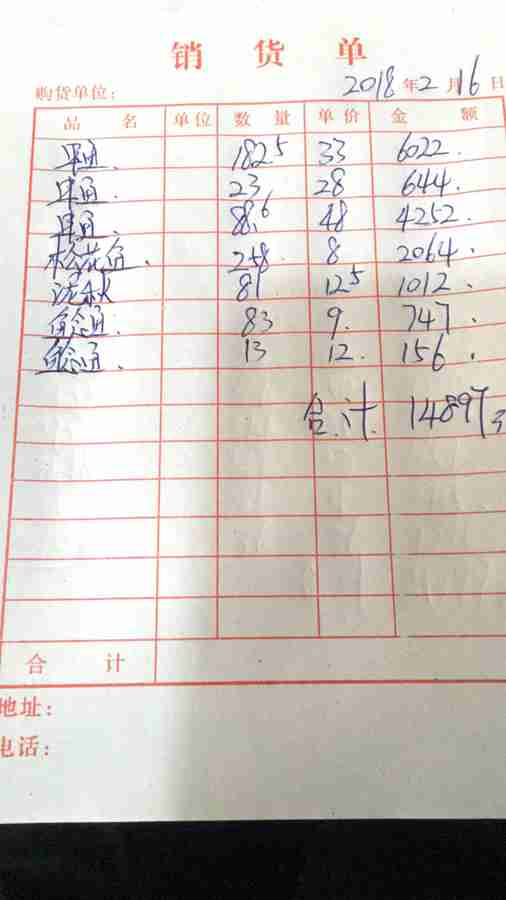 销 货 单
购货单位： 2018年2月16日
品 名 单位 数 量 单价 金 额
182⁵ 33 6022.
23 28 644.
88.6 48 4252.
258 8 2064.
81 12⁵ 1012.
83 9. 747.
13 12. 156.
合计 14897
合 计
地址：
电话：